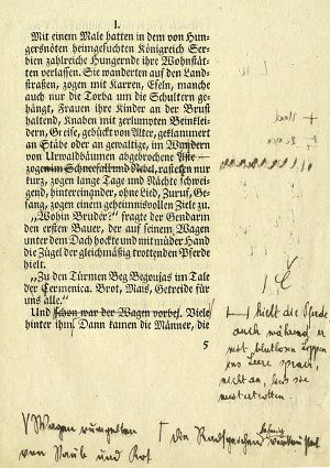 1.
Mit einem Male hatten in dem von Hun-
gersnöten heimgesuchten Königreich Ser-
bien zahlreiche Hungernde ihre Wohnstät-
ten verlassen. Sie wanderten auf den Land-
straßen, zogen mit Karren, Eseln, manche
auch nur die Torba um die Schultern ge-
hängt, Frauen ihre Kinder an der Brust
haltend, Knaben mit zerlumpten Beinklei-
dern, Greise, gebückt von Alter, geklammert
an Stäbe oder an gewaltige, im Wandern
von Urwaldbäumen abgebrochene Äste
zogen im Schneefall und Nebel, rasteten nur
kurz, zogen lange Tage und Nächte schwei-
gend, hintereinander, ohne Lied, Zuruf, Ge-
sang, zogen einem geheimnisvollen Ziele zu.
„Wohin Bruder?“ fragte der Gendarm
den ersten Bauer, der auf seinem Wagen
unter dem Dach hockte und mit müder Hand
die Zügel der gleichmäßig trottenden Pferde
hielt.
„Zu den Türmen Beg Begoujas im Tale
der Cermenica. Brot, Mais, Getreide für
uns alle.“
Und schon war der Wagen vorbei. Viele
hinter ihm. Dann kamen die Männer, die
5
hielt die Pferde
auch während er
mit blutlosen Lippen
ins Leere sprach,
nicht an, und sie
weitertrotteten
Wagen rumpelten
von Staub und Kot
die Radspeichen